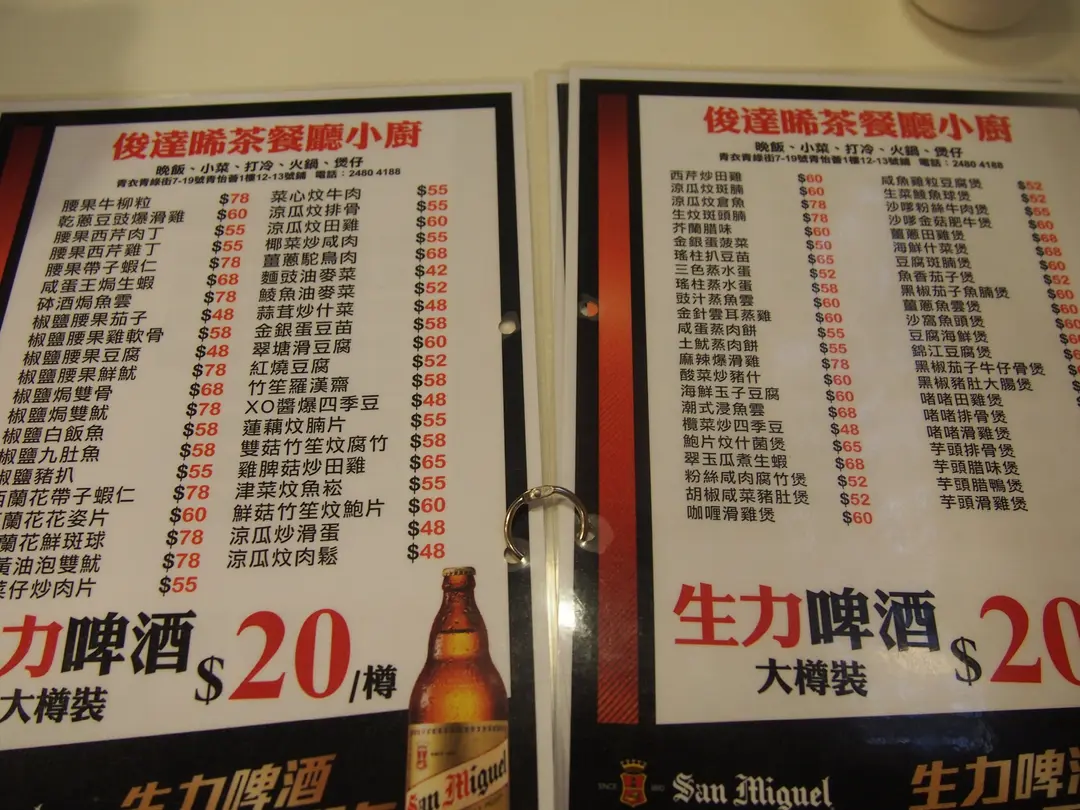 俊達晞茶餐廳小廚
晚飯、小菜、打冷、火鍋、煲仔
青衣青綠街7-19號青怡薈1樓12-13號鋪 電話：2480 4188
腰果牛柳粒 $78
乾蔥豆豉爆滑雞 $60
腰果西芹肉丁 $55
腰果西芹雞丁 $55
腰果帶子蝦仁 $78
咸蛋王焗生蝦 $68
砵酒焗魚雲 $78
椒鹽腰果茄子 $48
椒鹽腰果雞軟骨 $58
椒鹽腰果豆腐 $48
椒鹽腰果鮮魷 $78
椒鹽焗雙骨 $68
椒鹽焗雙魷 $78
椒鹽白飯魚 $58
椒鹽九肚魚 $58
椒鹽豬扒 $55
西蘭花帶子蝦仁 $78
蘭花花姿片 $60
蘭花鮮斑球 $78
黃油泡雙魷 $78
菜仔炒肉片 $55
菜心炆牛肉 $55
涼瓜炆排骨 $55
涼瓜炆田雞 $60
椰菜炒咸肉 $55
薑蔥駝鳥肉 $68
麵豉油麥菜 $42
鯪魚油麥菜 $52
蒜茸炒什菜 $48
金銀蛋豆苗 $58
翠塘滑豆腐 $60
紅燒豆腐 $52
竹笙羅漢齋 $58
XO醬爆四季豆 $48
蓮藕炆腩片 $55
雙菇竹笙炆腐竹 $58
雞脾菇炒田雞 $65
津菜炆魚崧 $55
鮮菇竹笙炆鮑片 $60
涼瓜炒滑蛋 $48
涼瓜炆肉鬆 $48
力啤酒 $20/樽
大樽裝
San Miguel
生力啤酒
俊達晞茶餐廳小廚
晚飯、小菜、打冷、火鍋、煲仔
青衣青綠街7-19號青怡薈1樓12-13號鋪 電話：2480 4188
西芹炒田雞 $60
涼瓜炆斑腩 $60
涼瓜炆倉魚 $78
生炆斑頭腩 $78
芥蘭腊味 $60
金銀蛋菠菜 $50
瑤柱扒豆苗 $65
三色蒸水蛋 $52
瑤柱蒸水蛋 $58
豉汁蒸魚雲 $60
金針雲耳蒸雞 $60
咸蛋蒸肉餅 $55
土魷蒸肉餅 $55
麻辣爆滑雞 $78
酸菜炒豬什 $60
海鮮玉子豆腐 $60
潮式浸魚雲 $68
欖菜炒四季豆 $48
鮑片炆什菌煲 $65
翠玉瓜煮生蝦 $68
粉絲咸肉腐竹煲 $52
胡椒咸菜豬肚煲 $52
咖喱滑雞煲 $60
咸魚雞粒豆腐煲 $52
生菜鯪魚球煲 $52
沙嗲粉絲牛肉煲 $55
沙嗲金菇肥牛煲 $60
薑蔥田雞煲 $68
海鮮什菜煲 $68
豆腐斑腩煲 $60
魚香茄子煲 $52
黑椒茄子魚腩煲 $60
薑蔥魚雲煲 $60
沙窩魚頭煲
豆腐海鮮煲
錦江豆腐煲
黑椒茄子牛仔骨煲
黑椒豬肚大腸煲
啫啫田雞煲
啫啫排骨煲
啫啫滑雞煲
芋頭排骨煲
芋頭腊味煲
芋頭腊鴨煲
芋頭滑雞煲
生力啤酒 $20
大樽裝
SINCE 1890 San Miguel
生力啤